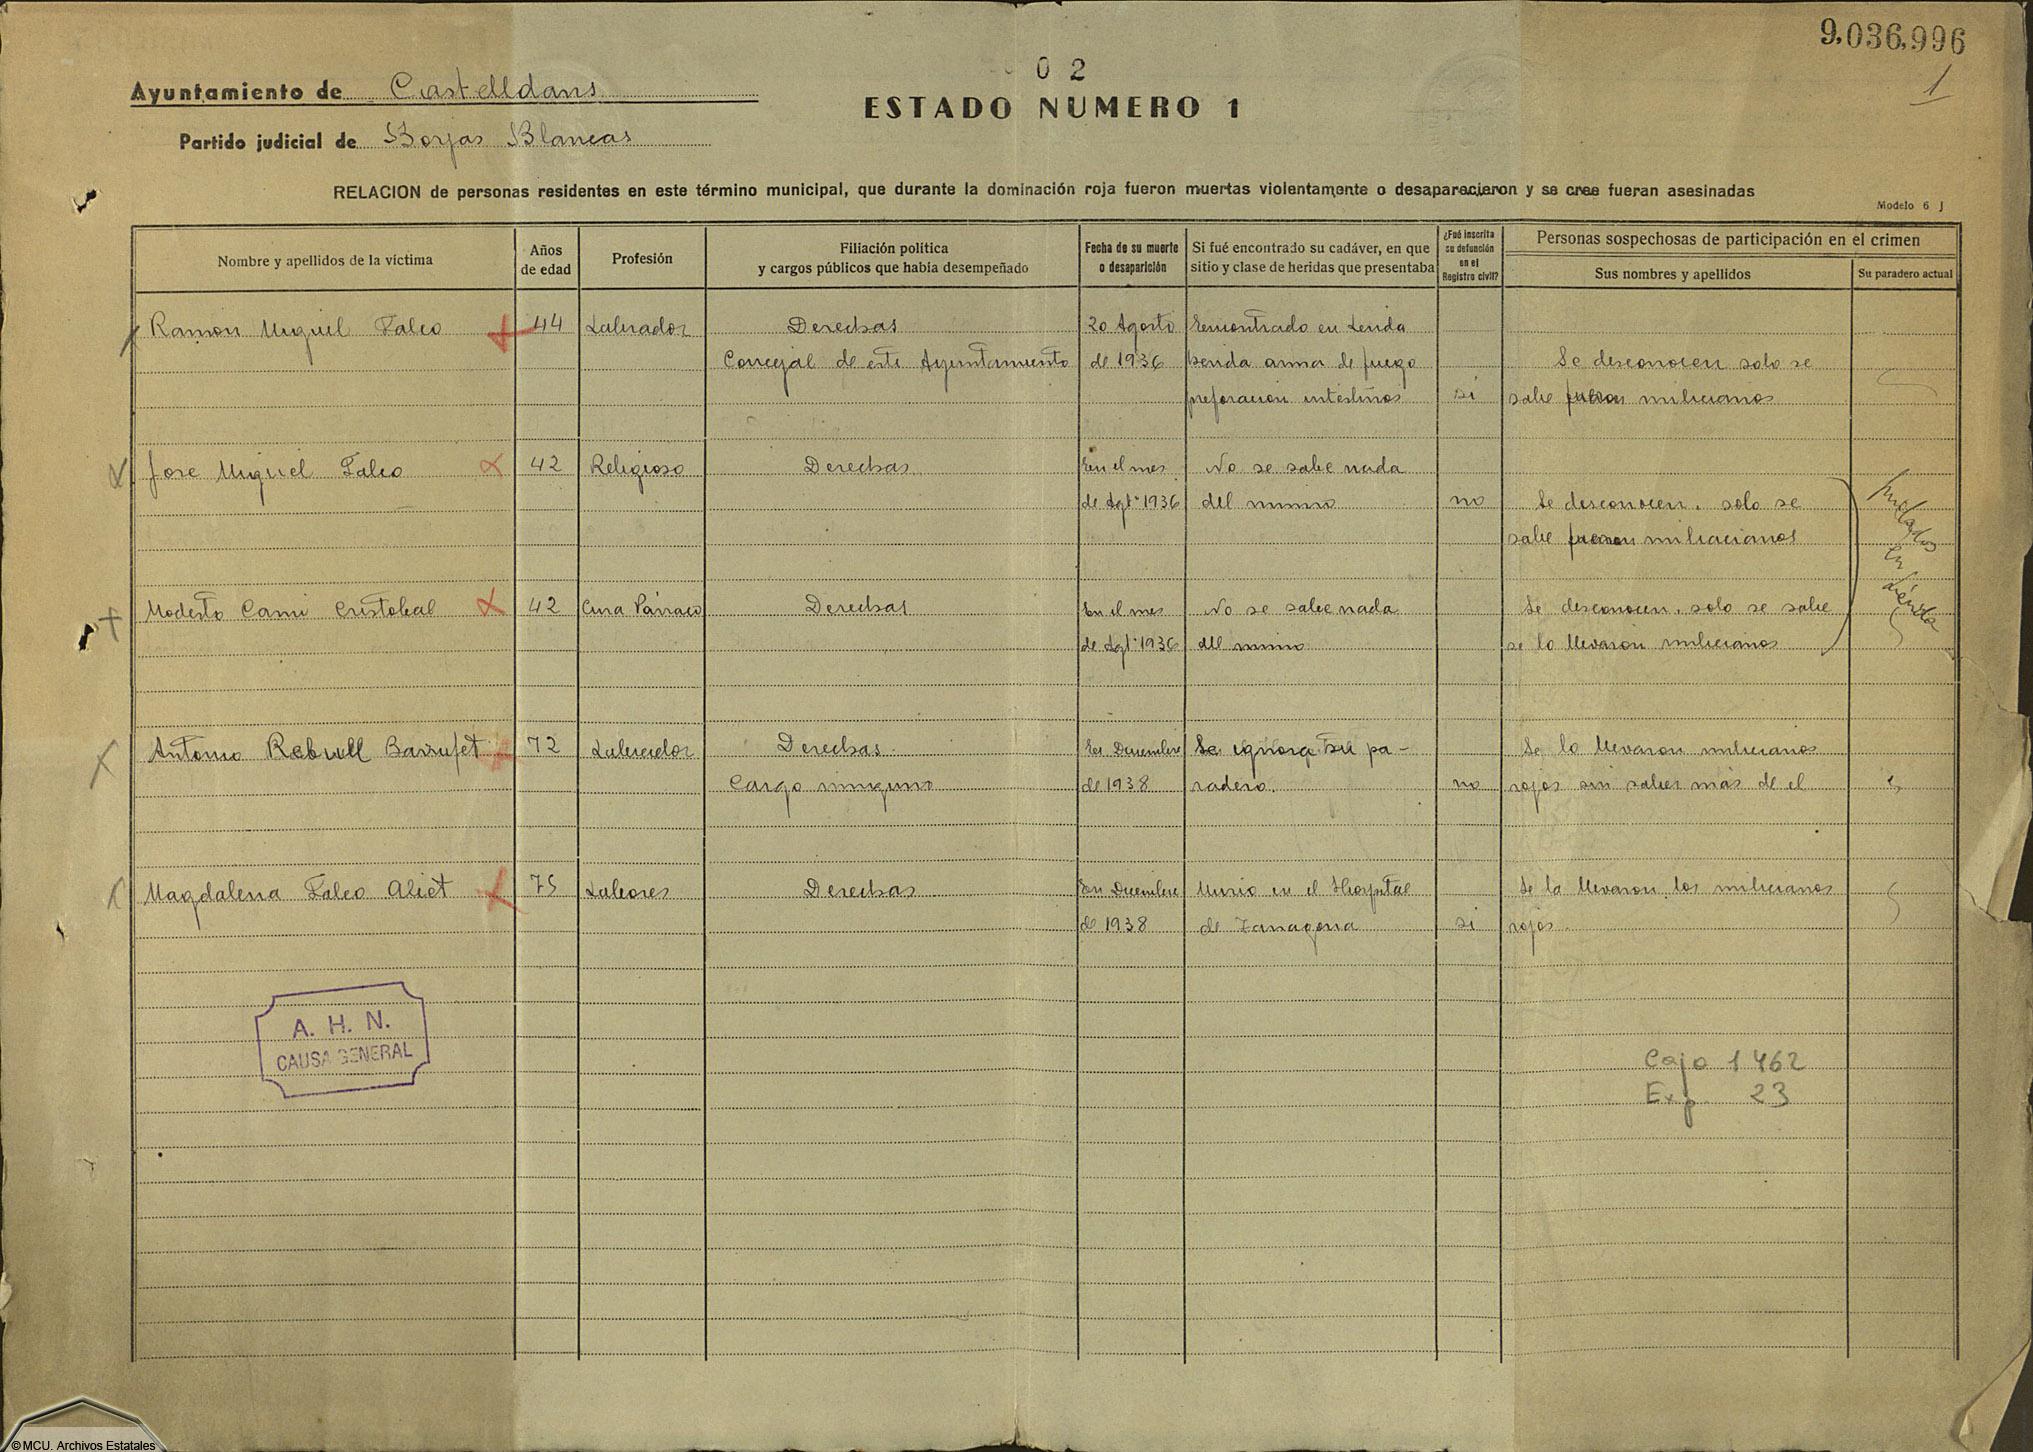 9,036,996
1
02
Ayuntamiento de Castelldans
ESTADO NUMERO 1
Partido judicial de Borjas Blancas
RELACION de personas residentes en este término municipal, que durante la dominación roja fueron muertas violentamente o desaparecieron y se cree fueran asesinadas
Modelo 6 J
Nombre y apellidos de la víctima
Años de edad
Profesión
Filiación política
y cargos públicos que había desempeñado
Fecha de su muerte
o desaparición
Si fué encontrado su cadáver, en que
sitio y clase de heridas que presentaba
¿Fué inscrita
su defunción
en el
Registro civil?
Personas sospechosas de participación en el crimen
Sus nombres y apellidos
Su paradero actual
Ramon Miguel Falco 44 Labrador Derechas 20 Agosto Encontrado en Lerida
Concejal de este Ayuntamiento de 1936 herida arma de fuego Se desconocen solo se
preforacion intestinos si sabe fueron milicianos
Jose Miguel Falco 42 Religioso Derechas En el mes No se sabe nada
de Agtº 1936 del mismo no Se desconocen, solo se
sabe fueron milicianos
fusilados en Lérida
Modesto Cami Cristobal 42 Cura Párraco Derechas En el mes No se sabe nada Se desconocen, solo se sabe
de Agtº 1936 del mismo se lo llevaron milicianos
Antonio Rebull Barrufet 72 Labrador Derechas En Diciembre Se ignora su pa- Se lo llevaron milicianos
Cargo ninguno de 1938 radero. no rojos sin saber más de el
Magdalena Falco Aliet 75 Labores Derechas En Diciembre Murio en el Hospital Se la llevaron los milicianos
de 1938 de Tarragona si rojos.
A. H. N.
CAUSA GENERAL
Caja 1462
Exp. 23
©MCU. Archivos Estatales